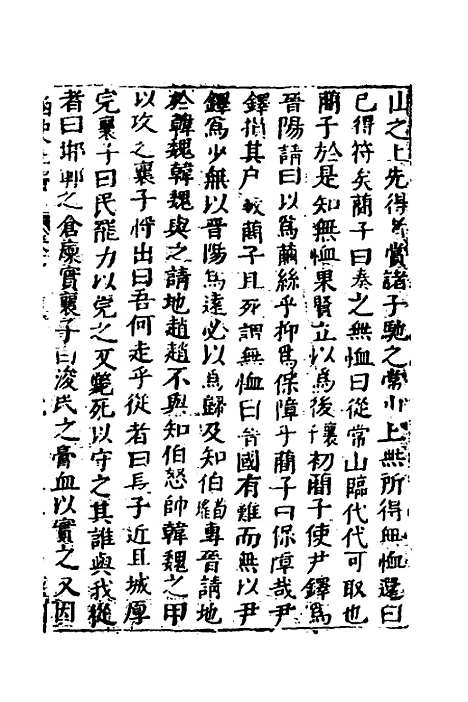 山之上先得者賞諸子馳之常山上無所得無恤還曰
已得符矣簡子曰奏之無恤曰從常山臨代代可取也
簡子於是知無恤果賢立以爲後襄初簡子使尹鐸爲
晉陽請曰以爲繭絲乎抑爲保障乎簡子曰保障哉尹
鐸損其户數簡子且死謂無恤曰晉國有難而無以尹
鐸爲少無以晉陽爲遠必以爲歸及知伯專晉請地
於韓魏韓魏與之請地趙趙不與知伯怒帥韓魏之甲
以攻之襄子將出曰吾何走乎從者曰長子近且城厚
完襄子曰民罷力以完之又斃死以守之其誰與我從
者曰邯鄲之倉廩實襄子曰浚民之膏血以實之又因